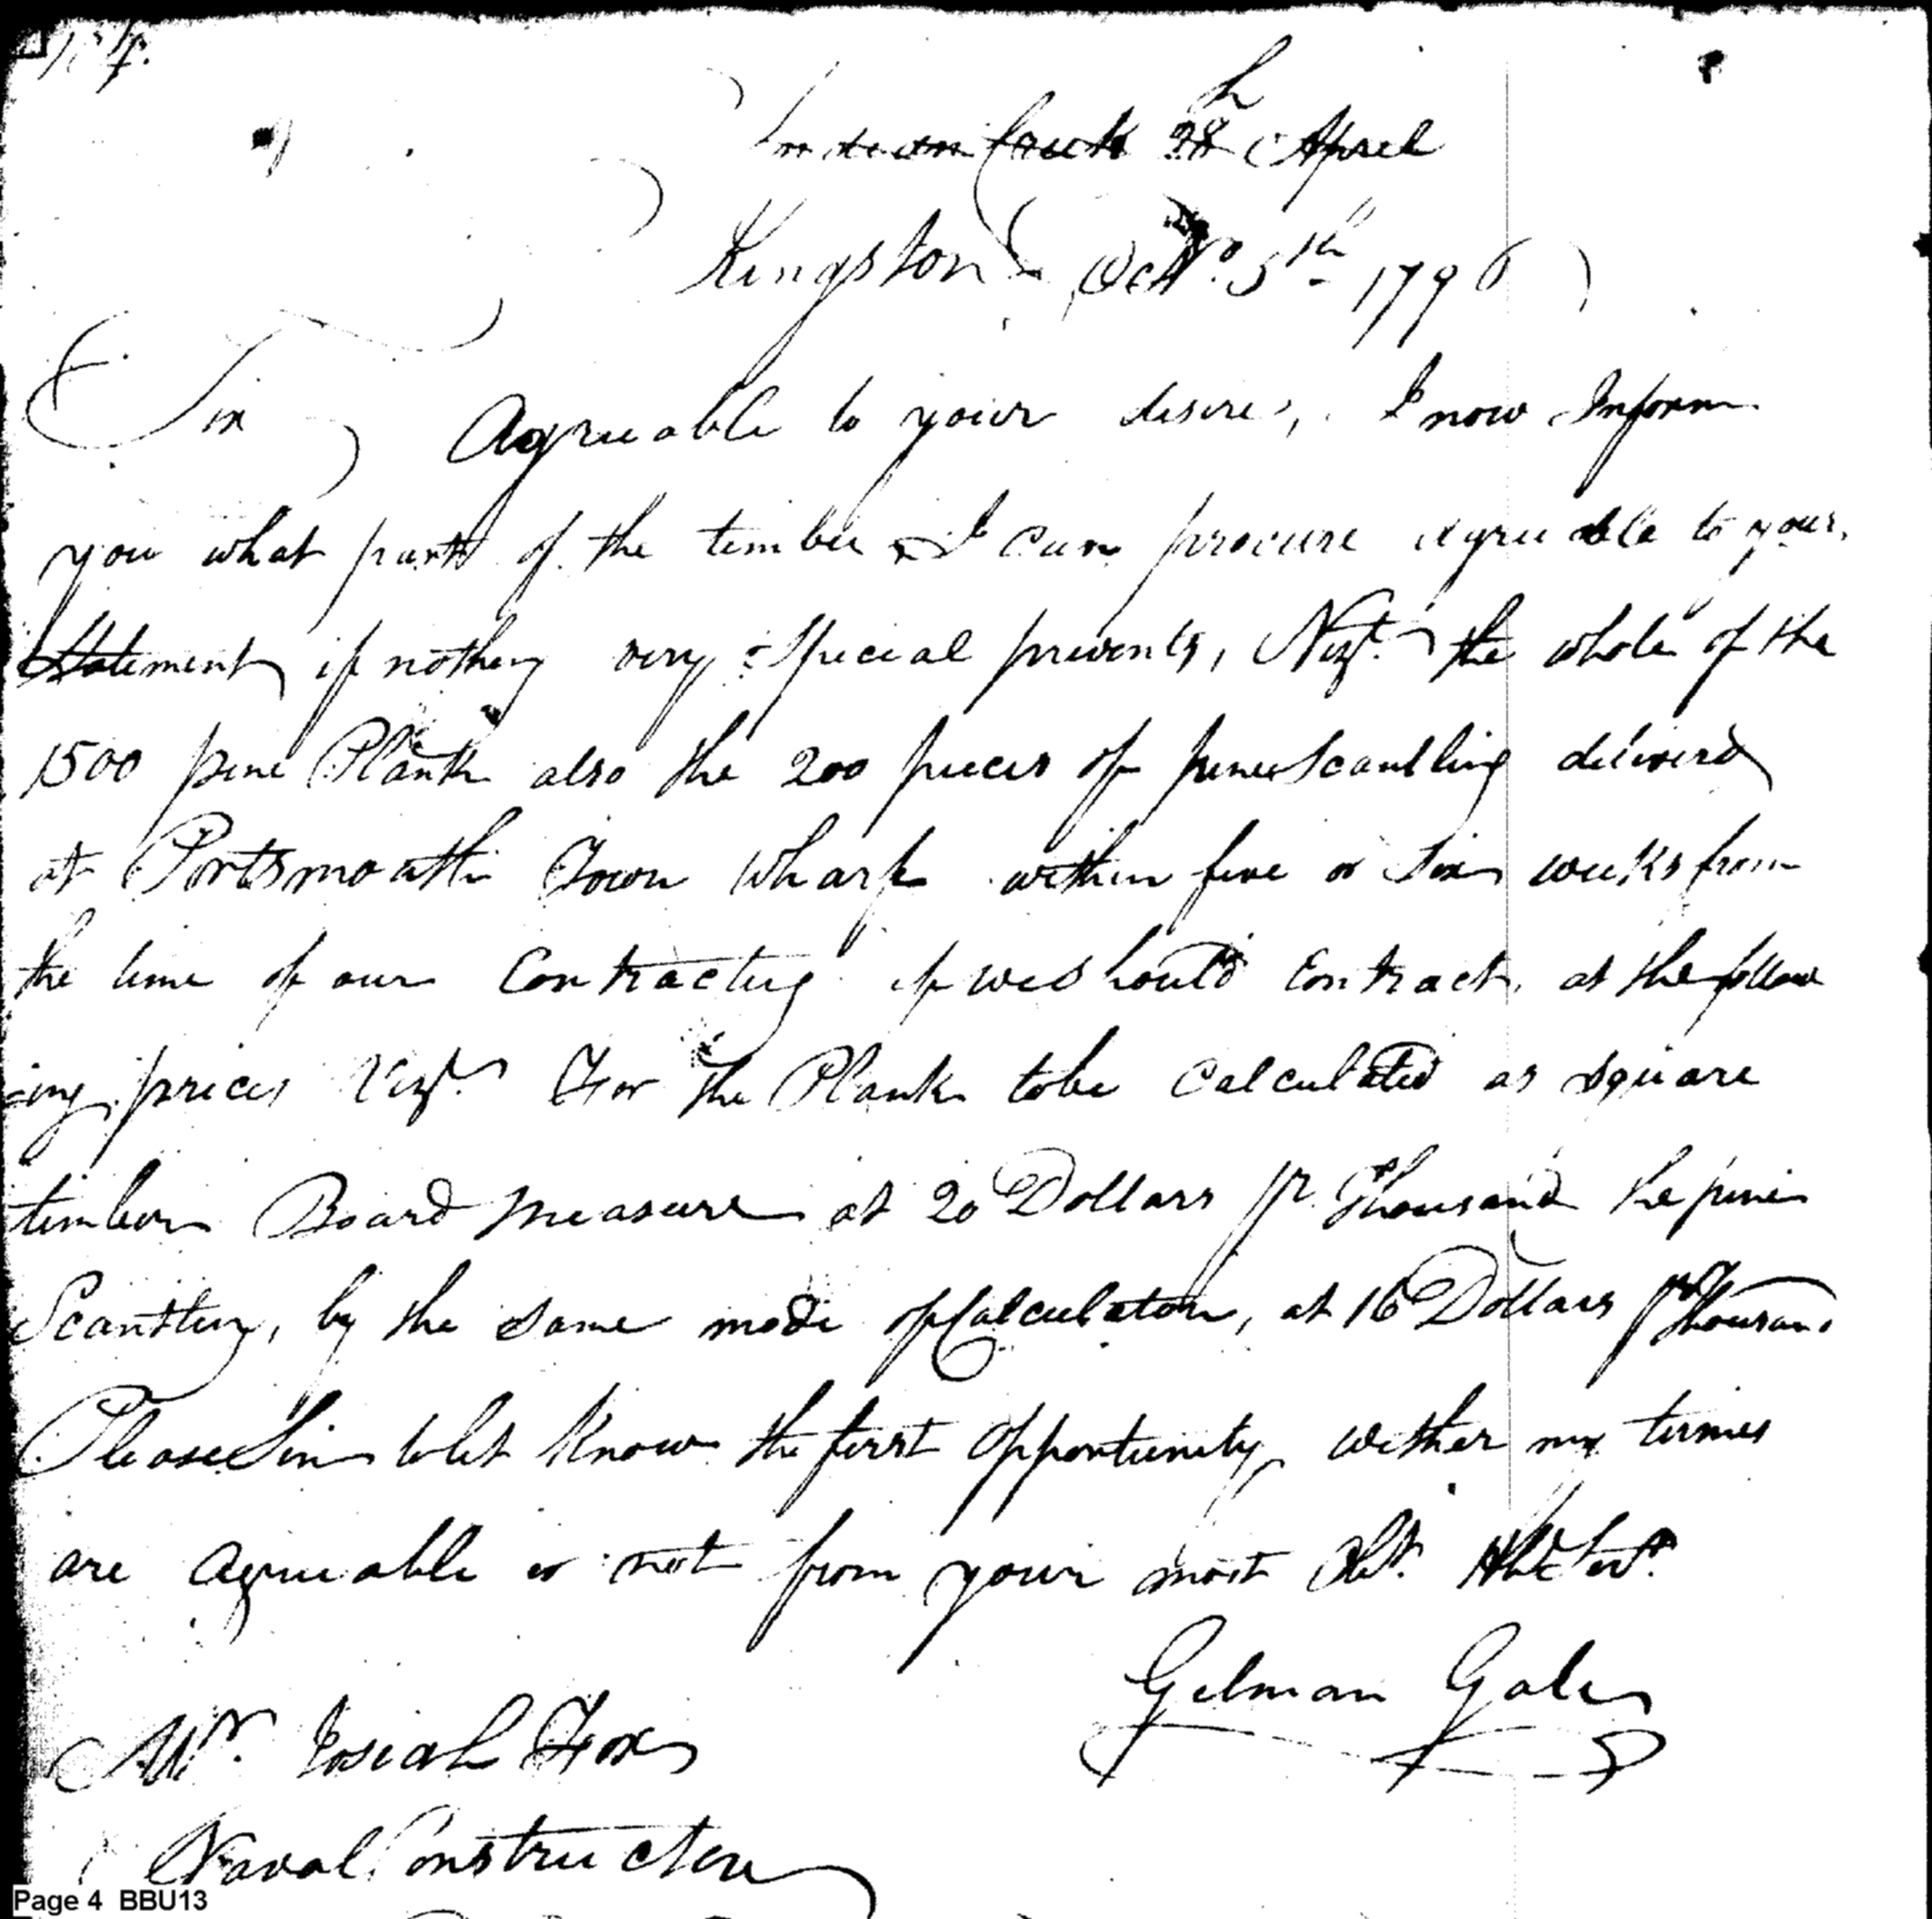 Indian Creek 28th April
Kingston Octr. 5th 1796
Sir Agreeable to your desire, I now Inform
you what part of the timber I can procure agreeable to your
Statement if nothing very Special prevents, Vizt. the whole of the
1500 pine Plank also the 200 pieces of pine Scantling deliverd
at Portsmouth Town Wharf within five or Six weeks from
the time of our Contracting if we should Contract, at the follow
ing prices Vizt. For the Plank to be Calculated as square
timber Board measure at 20 Dollars pr. Thousand the pine
Scantling, by the same mode of Calculation, at 16 Dollars pr Thousand
Please Sir to let know the first opportunity wether my termes
are agreeable or not from your most Obt. Hble Servt.
Gilman Gale
Mr. Josiah Fox
Naval Constructor
Page 4 BBU13